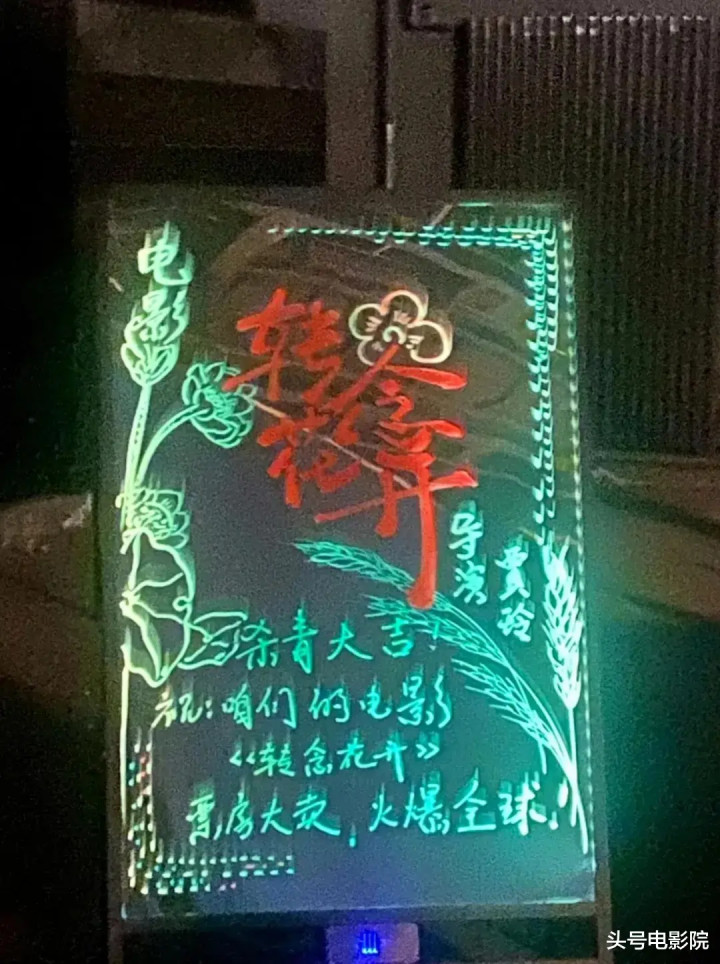 电影
转念花开
导演
贾玲
杀青大吉!
祝:咱们的电影
《转念花开》
票房大卖,火爆全球!
头号电影院